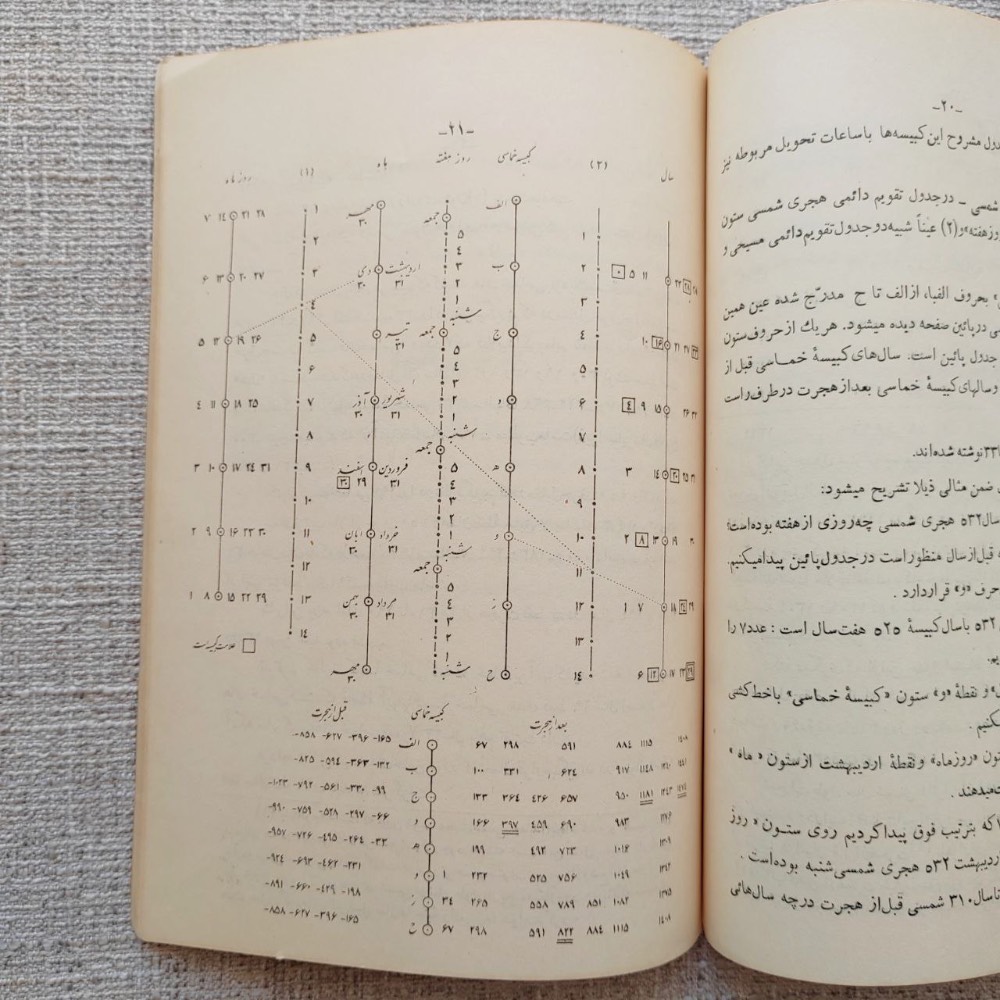 -۲۰-
دول مشروح این کبیسه‌ها باساعات تحویل مربوطه نیز
شمسی - درجدول تقویم دائمی هجری شمسی ستون
وزهفته» و (۲) عیناً شبیه دوجدول تقویم دائمی مسیحی و
» بحروف الفباء، از الف تا ح مدرّج شده عین همین
ی درپائین صفحه دیده میشود. هریك از حروف ستون
جدول پائین است. سال‌های کبیسهٔ خماسی قبل از
وسالهای کبیسهٔ خماسی بعد از هجرت درطرف راست
نوشته شده‌اند.
ضمن مثالی ذیلا تشریح میشود:
سال ۵۳۲ هجری شمسی چه روزی از هفته بوده است؛
ه قبل از سال منظور است درجدول پائین پیدا میکنیم.
حرف «و» قرار دارد.
۵۳۲ باسال کبیسهٔ ۵۲۵ هفت سال است : عدد ۷ را
یم.
» و نقطهٔ «و» ستون «کبیسهٔ خماسی» باخط‌کشی
یکنیم.
ون «روزماه» و نقطهٔ اردیبهشت از ستون «ماه»
ت میدهند.
ا که بترتیب فوق پیدا کردیم روی ستون «روز
ردیبهشت ۵۳۲ هجری شمسی شنبه بوده است.
تا سال ۳۱۰ شمسی قبل از هجرت درچه سال‌هائی
-۲۱-
سال (۲) کبیسه خماسی روز هفته ماه (۱) روز ماه
الف جمعه مهر ۳۰ ۱ ۲۸ ۲۱ ۱۴ ۷
۱ ۵ ۲
۱۱ ۵ ۰ ۲ ب ۴ ۳ اردیبهشت ۳۱ دی ۳۰ ۳ ۲۷ ۲۰ ۱۳ ۶
۳ ۲ ۱ شنبه ۴
۲۷ ۲۱ ۱۶ ۱۰ ۴ ج جمعه تیر ۳۱ ۵ ۲۶ ۱۹ ۱۲ ۵
۵ ۵ ۴ ۳ ۶
۱۵ ۹ ۴ ۶ د ۲ ۱ شهریور ۳۱ آذر ۳۰ ۷ ۲۵ ۱۸ ۱۱ ۴
۷ شنبه جمعه ۸
۲۵ ۲۰ ۱۴ ۳ ۸ ه ۵ ۴ فروردین ۳۱ اسفند ۲۹ ۳۰ ۹ ۳۱ ۲۴ ۱۷ ۱۰ ۳
۹ ۳ ۲ ۱۰
۱۹ ۱۳ ۸ ۲ ۱۰ و ۱ شنبه خرداد ۳۱ آبان ۳۰ ۱۱ ۳۰ ۲۳ ۱۶ ۹ ۲
۱۱ جمعه ۵ ۱۲
۲۹ ۲۴ ۱۸ ۷ ۱ ۱۲ ز ۴ ۳ مرداد ۳۱ بهمن ۳۰ ۱۳ ۲۹ ۲۲ ۱۵ ۸ ۱
۱۳ ۲ ۱ ۱۴
۲۹ ۲۳ ۱۷ ۱۲ ۶ ۱۴ ح شنبه مهر ۳۰
علامت کبیسه است
بعد از هجرت کبیسه خماسی قبل از هجرت
۱۱۱۵ ۸۸۴ ۵۹۱ ۲۹۸ ۶۷ الف -۱۶۵ -۳۹۶ -۶۲۷ -۸۵۸
۱۱۴۸ ۹۱۷ ۶۲۴ ۳۳۱ ۱۰۰ ب -۱۳۲ -۳۶۳ -۵۹۴ -۸۲۵
۱۱۸۱ ۹۵۰ ۶۵۷ ۴۲۶ ۳۶۴ ۱۳۳ ج -۹۹ -۳۳۰ -۵۶۱ -۷۹۲ -۱۰۲۳
۹۸۳ ۶۹۰ ۴۵۹ ۳۹۷ ۱۶۶ د -۶۶ -۲۹۷ -۵۲۸ -۷۵۹ -۹۹۰
۱۰۱۶ ۷۲۳ ۴۹۲ ۱۹۹ ه -۳۳ -۲۶۴ -۴۹۵ -۷۲۶ -۹۵۷
۱۰۴۹ ۷۵۶ ۵۲۵ ۲۳۲ ۱ و -۲۳۱ -۴۶۲ -۶۹۳ -۹۲۴
۱۰۸۲ ۸۵۱ ۷۸۹ ۵۵۸ ۲۶۵ ۳۴ ز -۱۹۸ -۴۲۹ -۶۶۰ -۸۹۱
۱۱۱۵ ۸۸۴ ۸۲۲ ۵۹۱ ۲۹۸ ۶۷ ح -۱۶۵ -۳۹۶ -۶۲۷ -۸۵۸